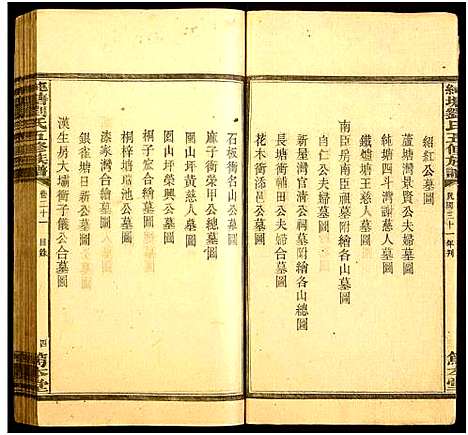 純塘劉氏五修族譜
民國三十一年刊
紹紅公墓圖
蘆灣灣景賢公夫婦墓圖
純塘四斗灣謝慈人墓圖
鐵爐塘王慈人墓圖
南臣房南臣祖墓附繪各山墓圖
自仁公夫婦墓圖
新屋灣官衝祖墓附繪各山總圖
長塘衝輔田公夫婦合墓圖
花木衝添邑公墓圖
石板衝名山公墓圖
廉子衝榮甲公總墓圖
園山坪黃慈人墓圖
園山坪榮興公墓圖
桐子宸合繪墓圖
桐梓塘椅公墓圖
漆家灣台合繪墓圖
銀雀塘日新公墓圖
漢生房大塲衝子儀公合墓圖
純塘劉氏五修族譜
卷二十一
目錄
四
篤本堂
篤本堂